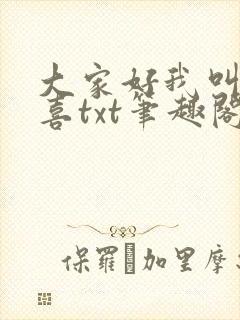 大家好我叫
喜txt笔趣阁
保羅·加里摩